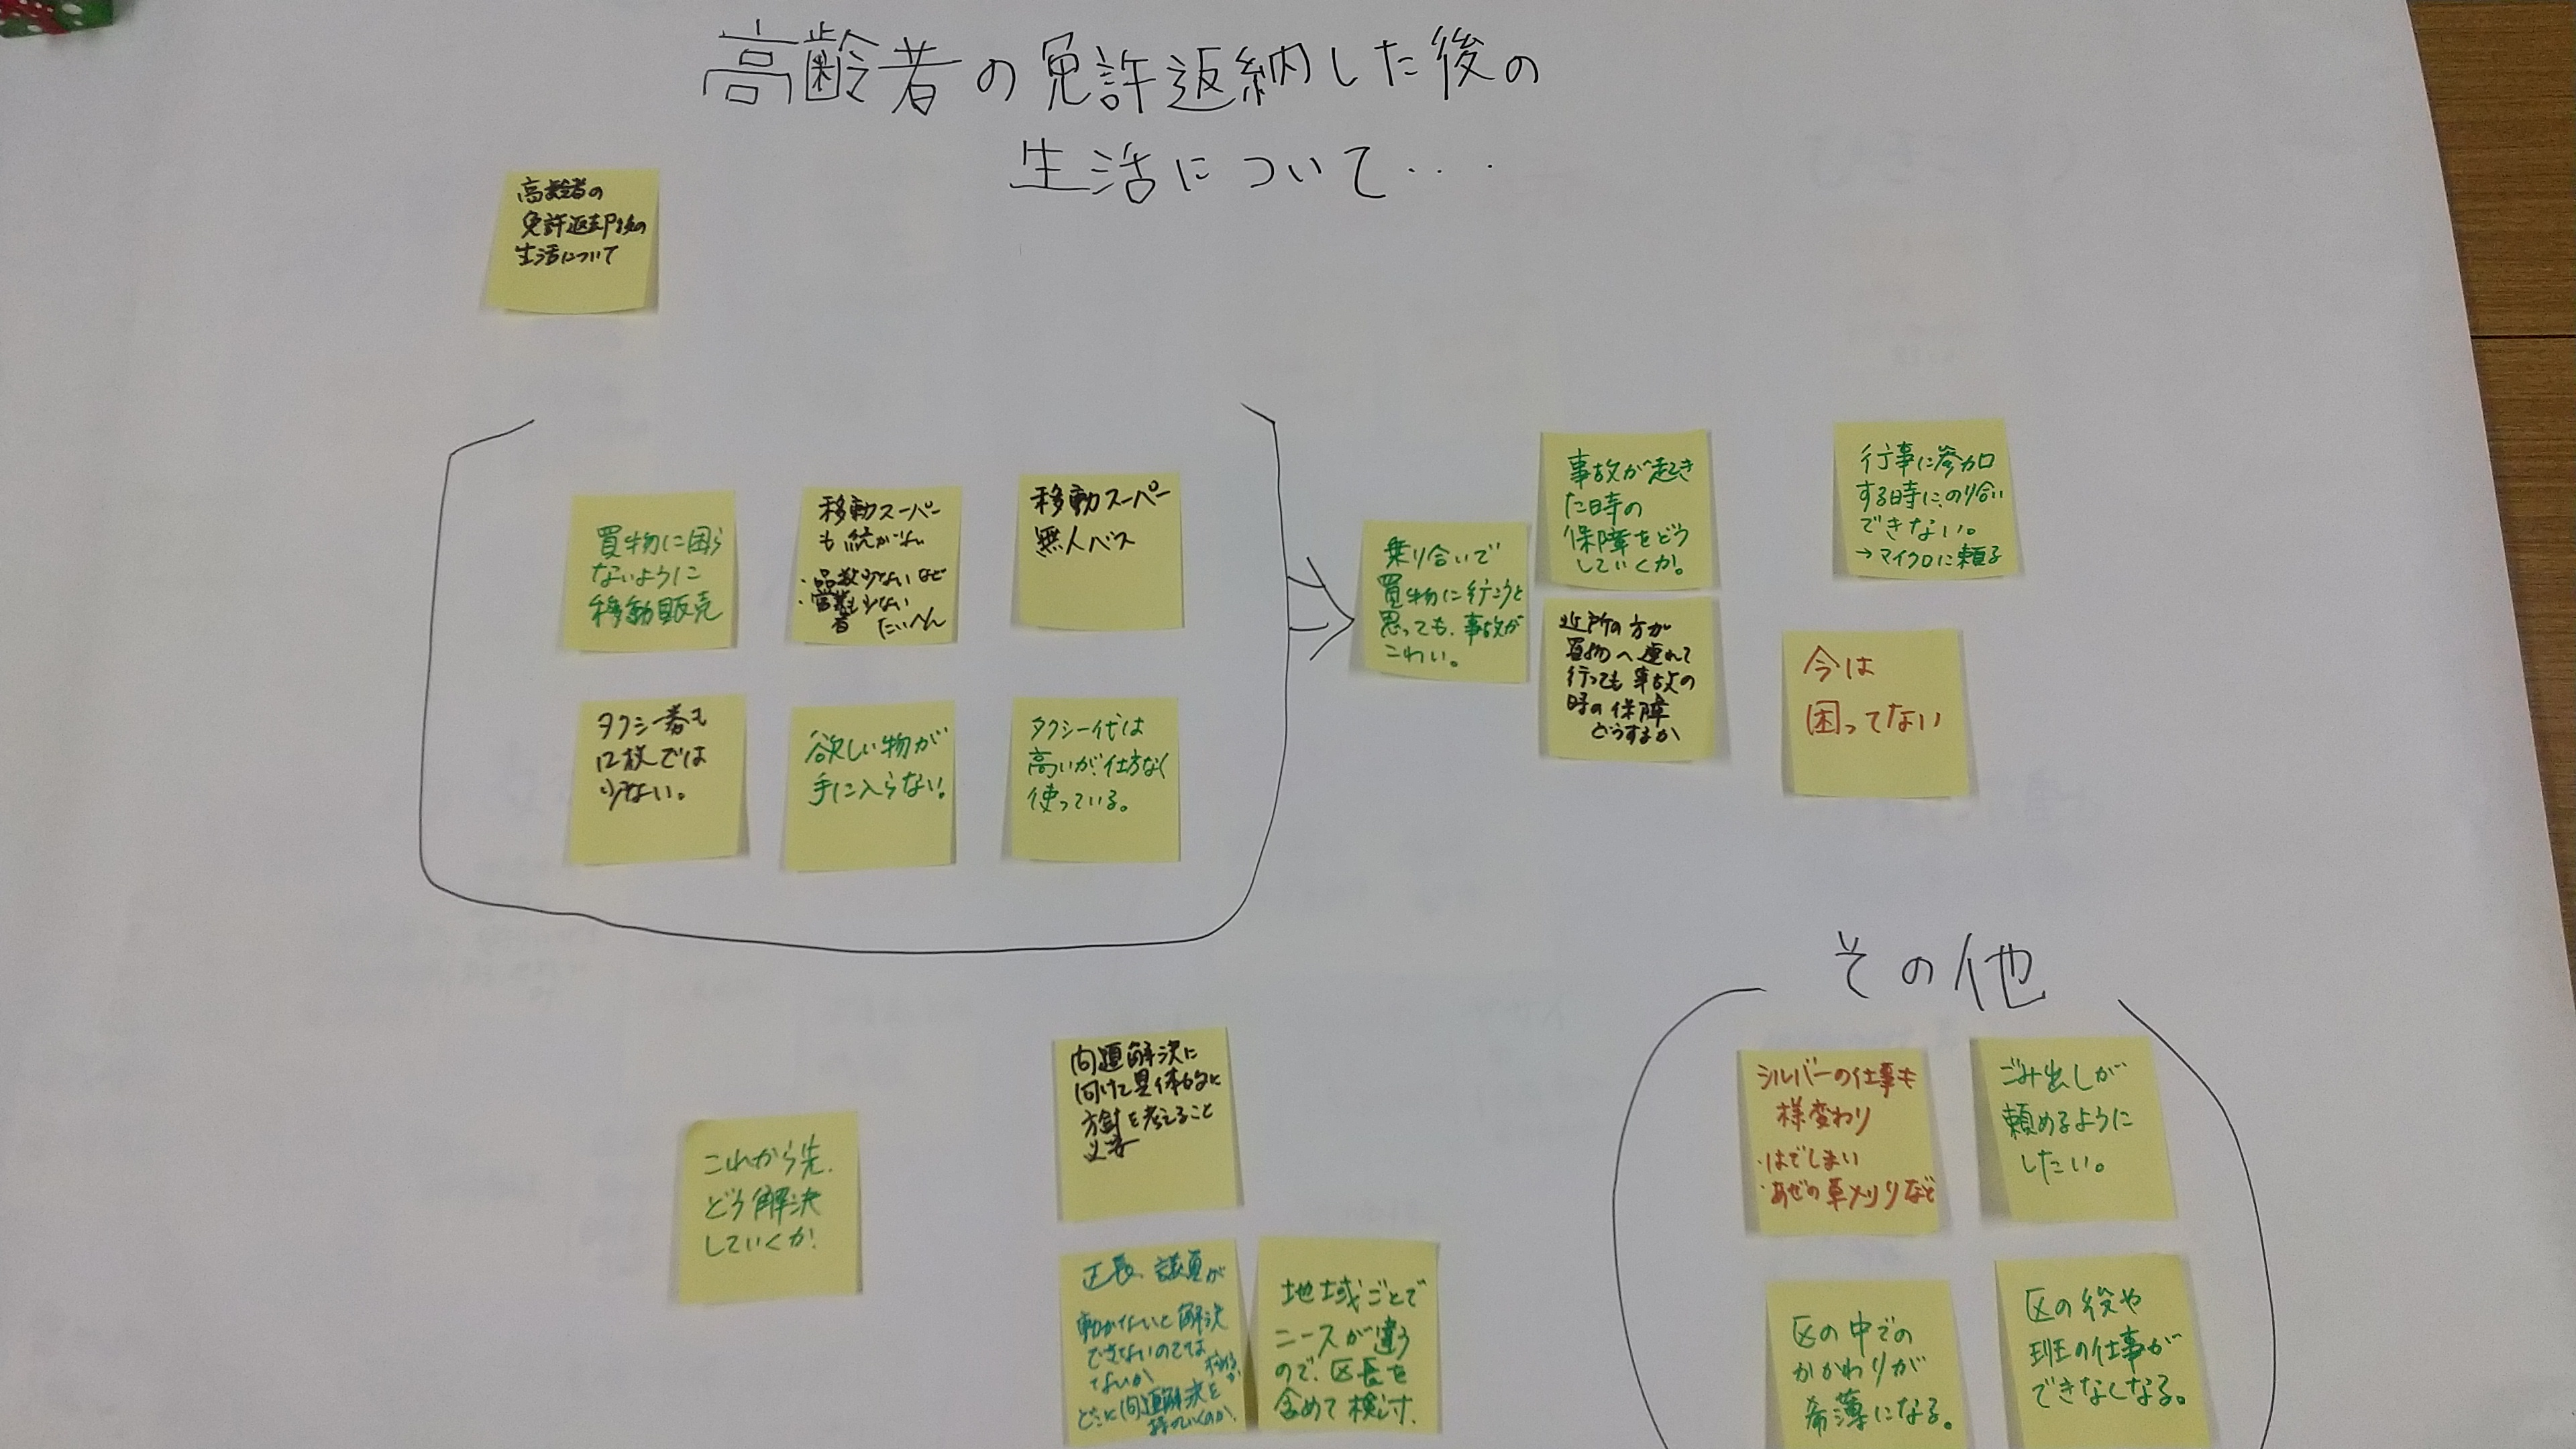 高齢者の免許返納した後の
生活について・・・
高齢者の
免許返却後の
生活について
買物に困ら
ないように
移動販売
移動スーパー
も続かない
・品数少ないなど
・営業も少ない
者 たいへん
移動スーパー
無人バス
タクシー券も
12枚では
少ない。
欲しい物が
手に入らない。
タクシー代は
高いが、仕方なく
使っている。
乗り合いで
買物に行こうと
思っても、事故が
こわい。
事故が起き
た時の
保障をどう
していくか。
近所の方が
買物へ連れて
行っても事故の
時の保障
どうするか
行事に参加
する時に、のり合い
できない。
→マイクロに頼る
今は
困ってない
これから先、
どう解決
していくか!
問題解決に
向けて具体的に
方針を考えること
必要
議員が
動かないと解決
できないのでは
ないか
どこに問題解決を
持っていくのか。
地域ごとで
ニーズが違う
ので、区長を
含めて検討、
その他
シルバーの仕事も
様変わり
・はでしまい
・あぜの草刈りなど
ごみ出しが
頼めるように
したい。
区の中での
かかわりが
希薄になる。
区の役や
班の仕事が
できなくなる。